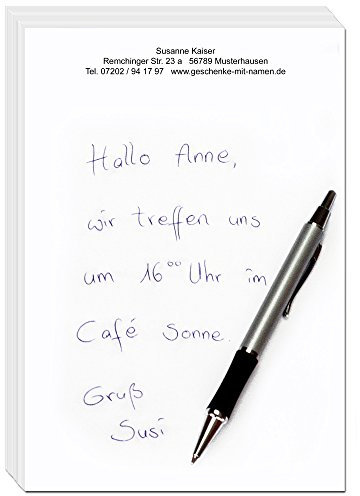 Susanne Kaiser
Remchinger Str. 23 a   56789 Musterhausen
Tel. 07202 / 94 17 97   www.geschenke-mit-namen.de
Hallo Anne,
wir treffen uns
um 16⁰⁰ Uhr im
Café Sonne.
Gruß
Susi